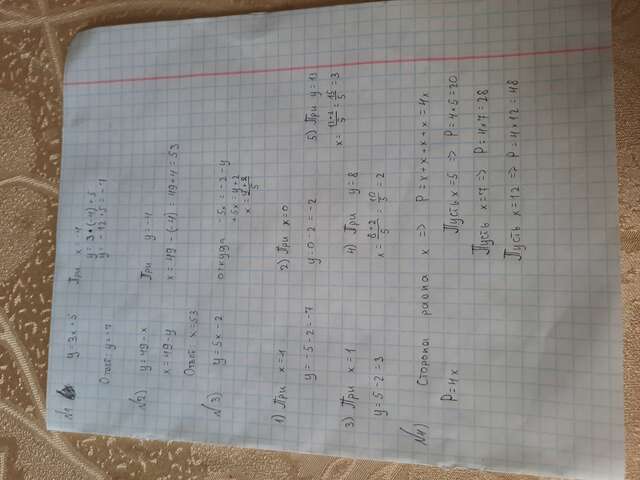 №1 y=3x+5 При x=-4
y=3*(-4)+5
y=-12+5=-7
Ответ: y=-7
№2) y=49-x При y=-4
x=49-y x=49-(-4)=49+4=53
Ответ: x=53
№3) y=5x-2 откуда -5x=-2-y
+5x=y+2
x=\frac{y+2}{5}
1) При x=-1 2) При x=0 5) При y=13
y=-5-2=-7 y=0-2=-2 x=\frac{13+2}{5}=\frac{15}{5}=3
3) При x=1 4) При y=8
y=5-2=3 x=\frac{8+2}{5}=\frac{10}{5}=2
№4) Сторона равна x => P=x+x+x+x=4x
P=4x Пусть x=5 => P=4*5=20
Пусть x=7 => P=4*7=28
Пусть x=12 => P=4*12=48